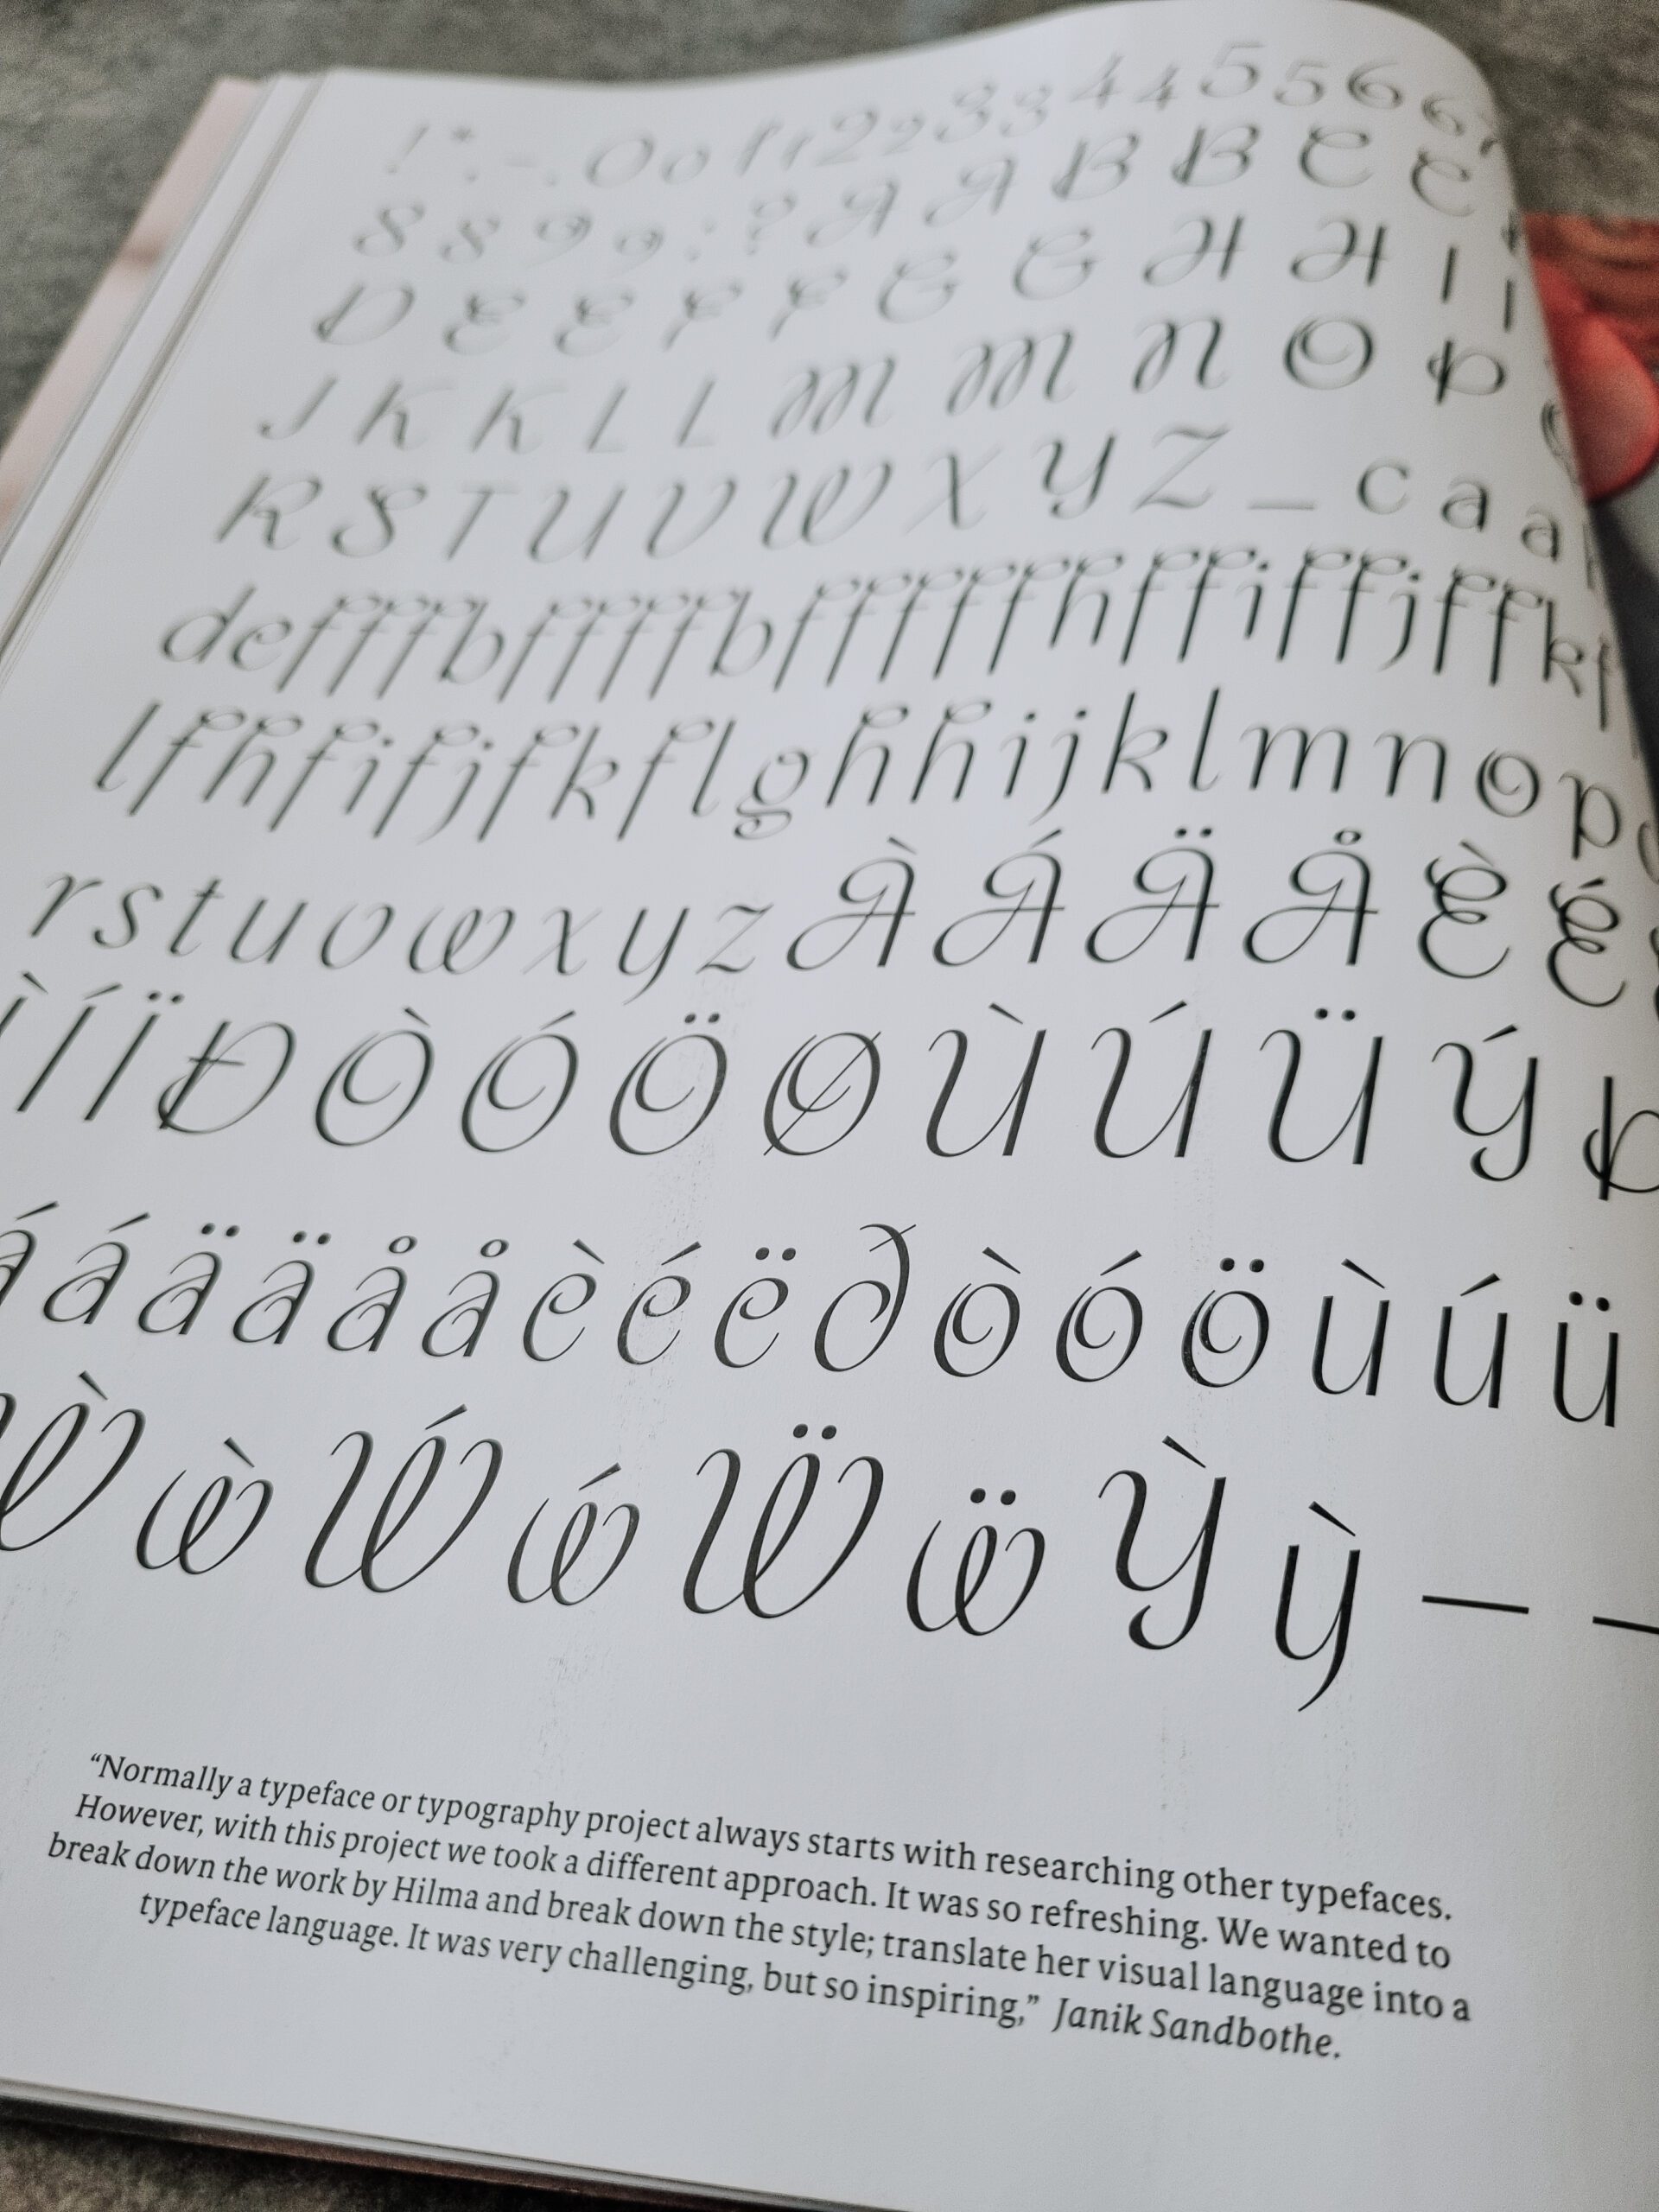 ! * . - . 0 0 1 1 2 2 3 3 4 4 5 5 6 6
8 8 9 9 : ? A A B B C C
D E E F F G G H H I I
J K K L L M M N O P
R S T U V W X Y Z _ c a a
d e f ff fb ff ffb ff ffh ff ffi ff ffj ff ffk f
l fh fi fj fk fl g h h i j k l m n o p
r s t u v w x y z À Á Ä Å È É
Ì Í Ï Ð Ò Ó Ö Ø Ù Ú Ü Ý Þ
á á ä ä å å è é ë ð ò ó ö ù ú ü
Ẁ ẁ Ẃ ẃ Ẅ ẅ Ỳ ỳ – –
“Normally a typeface or typography project always starts with researching other typefaces.
However, with this project we took a different approach. It was so refreshing. We wanted to
break down the work by Hilma and break down the style; translate her visual language into a
typeface language. It was very challenging, but so inspiring,” Janik Sandbothe.